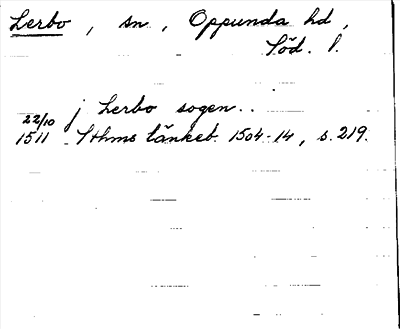 Lerbo, sn., Oppunda hd,
Söd. l.
j Lerbo sogen..
22/10
1511 Sthms tänkeb. 1504-14, s. 219.